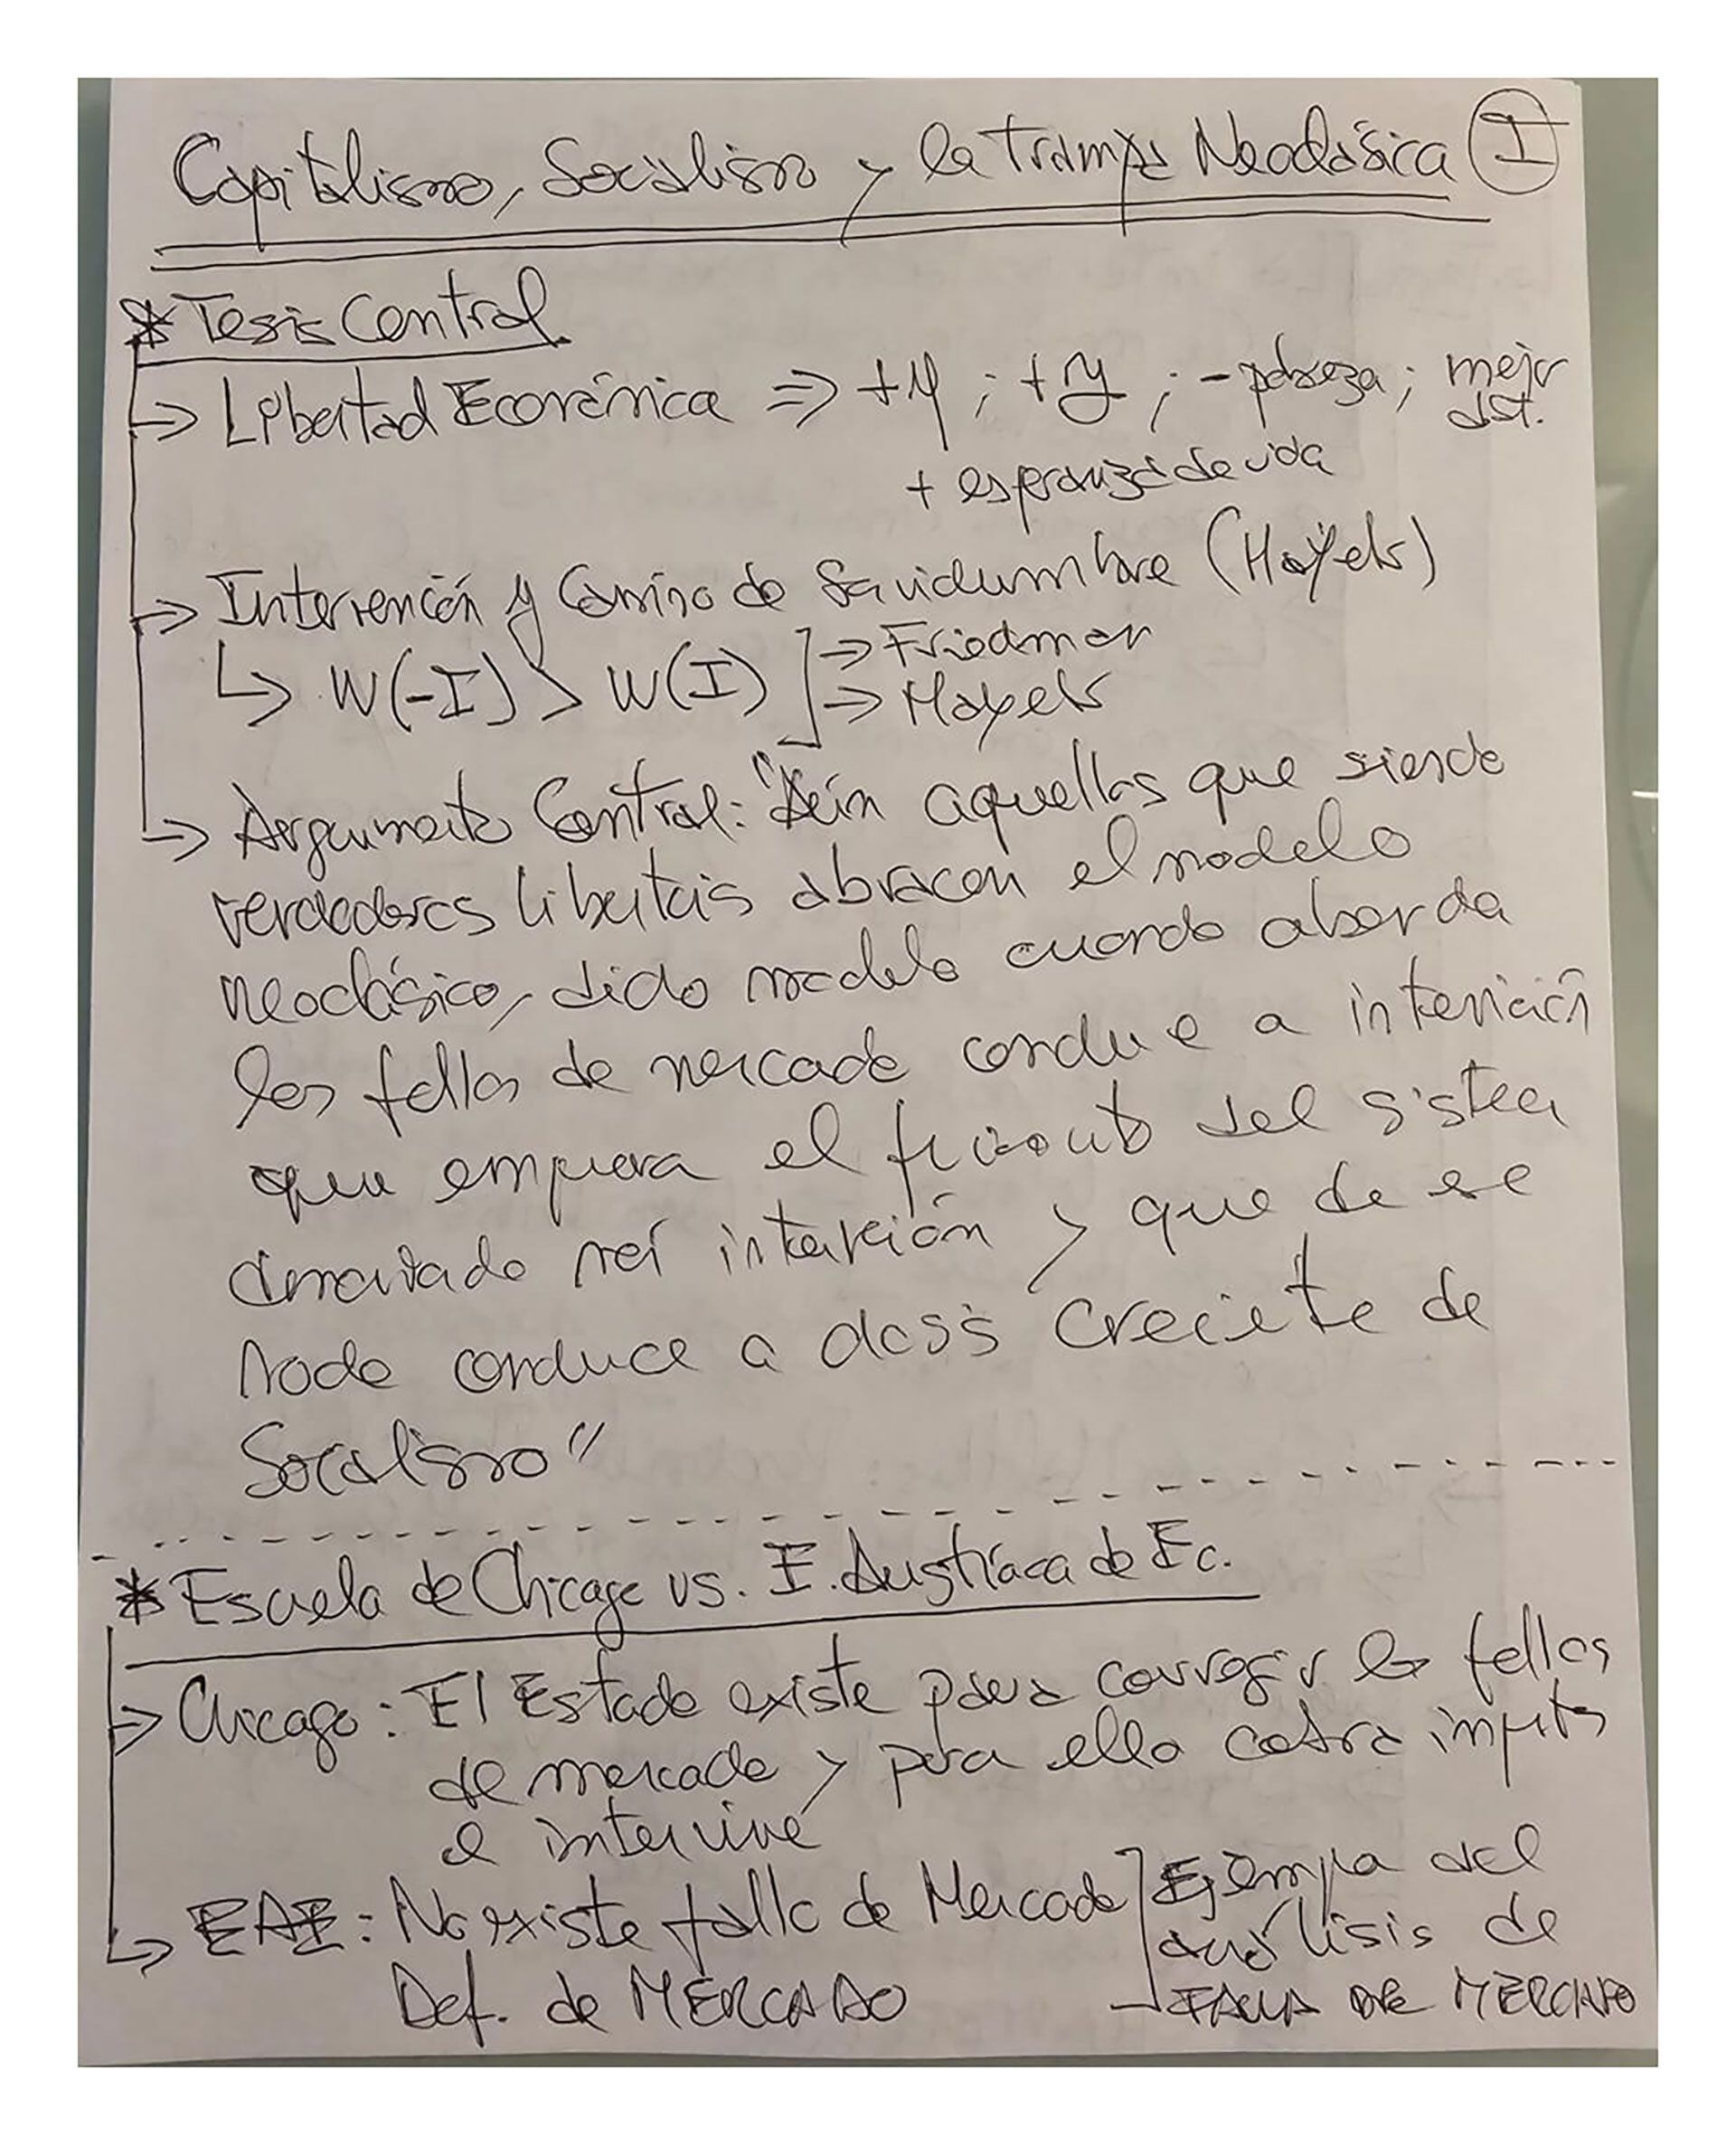 Capitalismo, Socialismo y la Trampa Neoclásica I
* Tesis Central
→ Libertad Económica ⇒ +y ; +ẏ ; - pobreza ; mejor dist.
+ esperanza de vida
→ Intervención y Camino de Servidumbre (Hayek)
↳ W(-I) > W(I) ] → Friedman
→ Hayek
→ Argumento Central: "Aún aquellos que siendo
verdaderos libertarios abracen el modelo
neoclásico, dicho modelo cuando aborda
los fallos de mercado conduce a intervención
que empeora el del sistema
intervención y que de ese
modo conduce a dosis creciente de
Socialismo"
* Escuela de Chicago vs. E. Austríaca de Ec.
→ Chicago: El Estado existe para corregir los fallos
de mercado y para ello cobra imptos
e interviene
↳ EAE: No existe fallo de Mercado ] Ejemplo del
análisis de
Def. de MERCADO
FALLA DE MERCADO